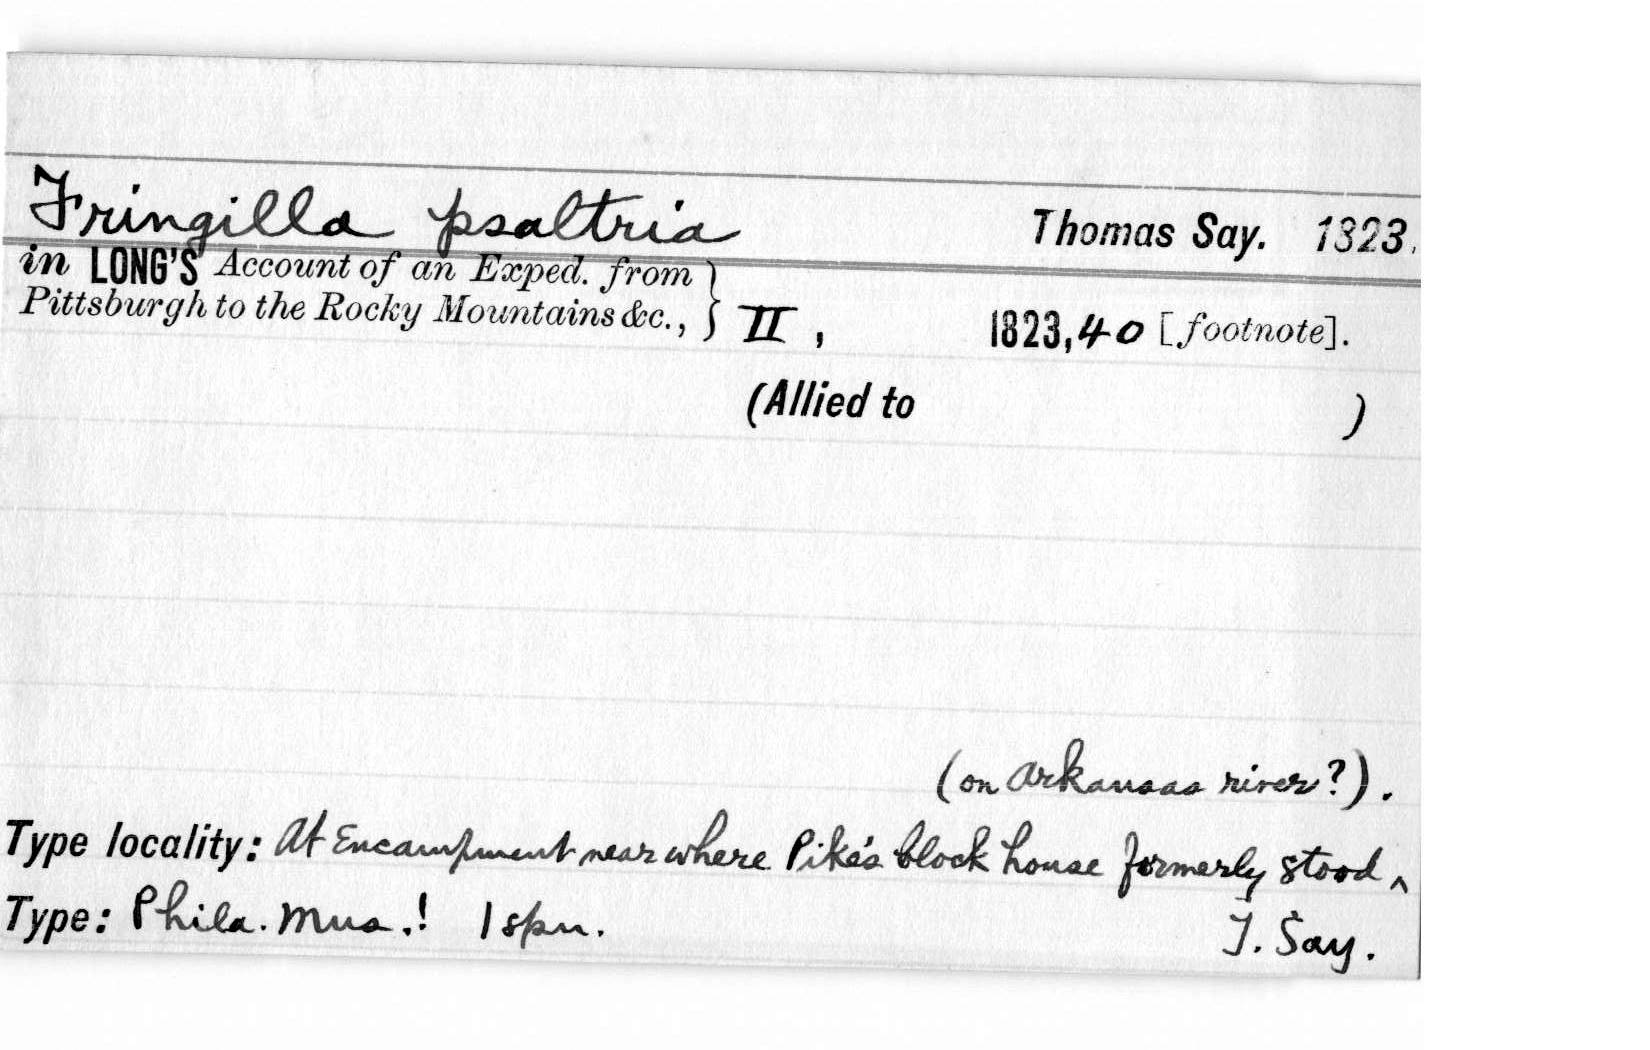 Fringilla psaltria Thomas Say. 1823.
in LONG'S Account of an Exped. from
Pittsburgh to the Rocky Mountains &c., } II, 1823, 40 [footnote].
(Allied to )
(on Arkansas river?).
Type locality: At Encampment near where Pike's block house formerly stood ^
Type: Phila. Mus.! 1 spn. T. Say.